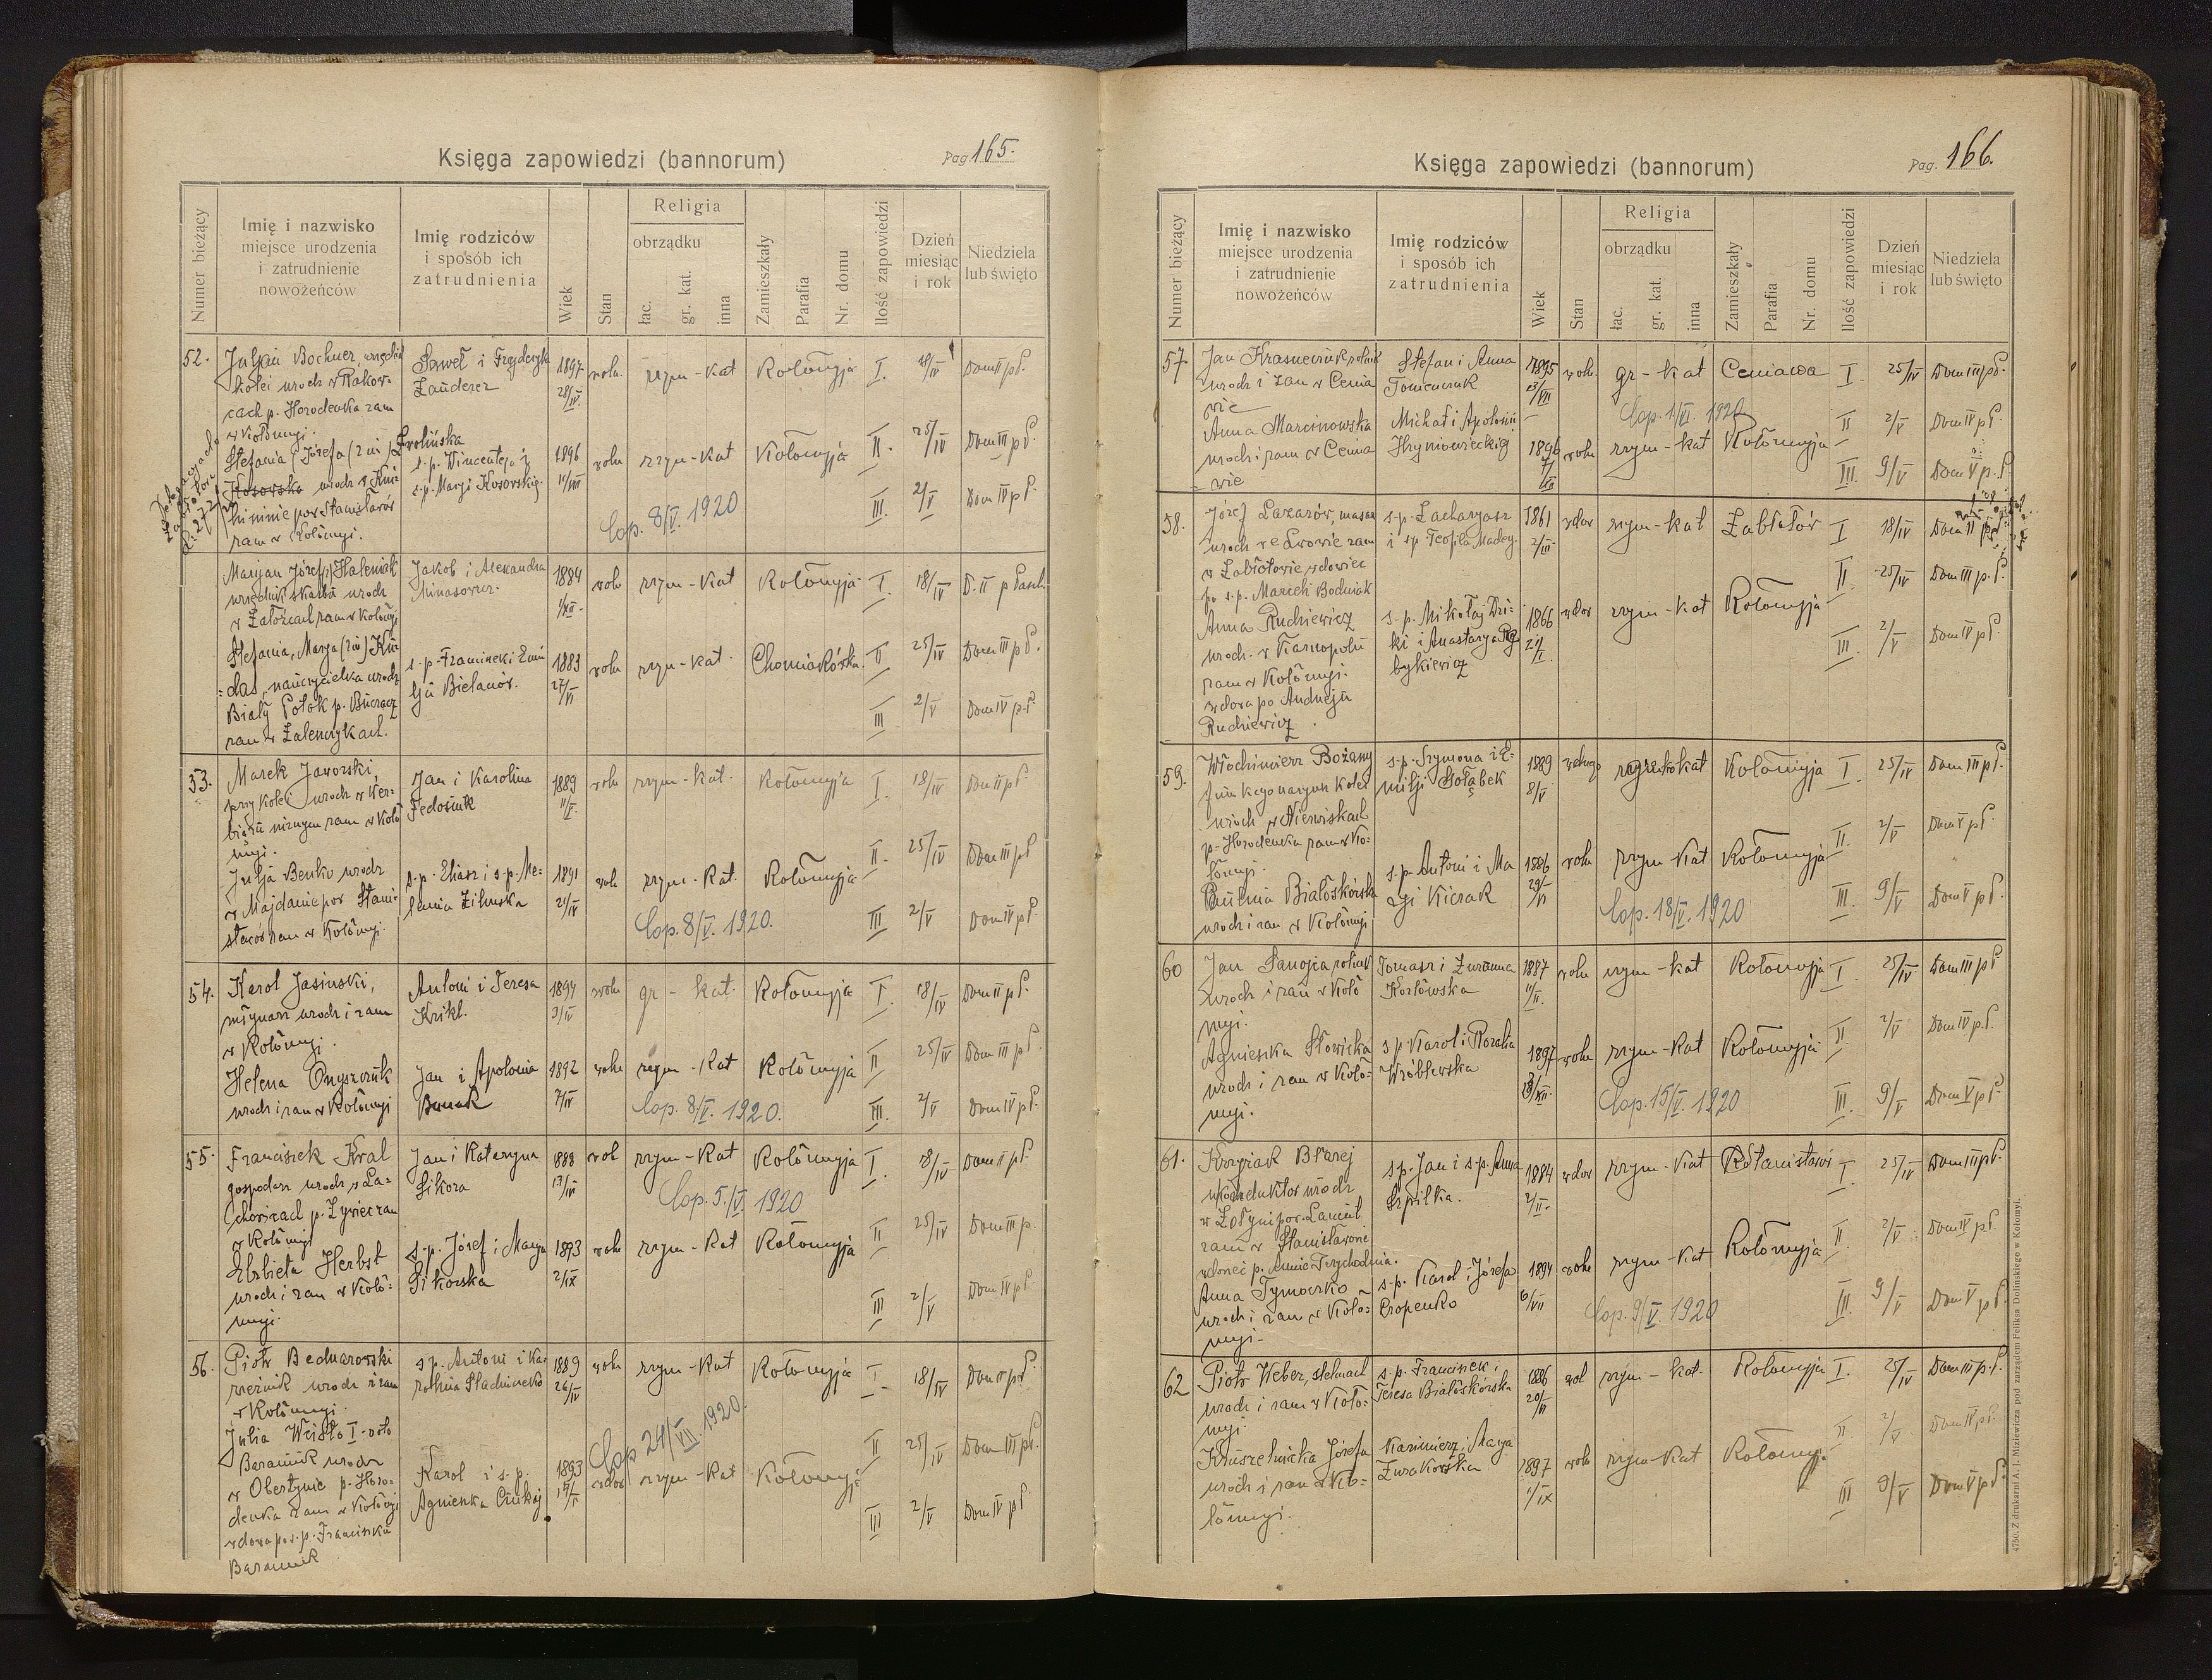 Księga zapowiedzi (bannorum)
Pag. 165.
Numer bieżący
Imię i nazwisko
miejsce urodzenia
i zatrudnienie
nowożeńców
Imię rodziców
i sposób ich
zatrudnienia
Wiek
Stan
Religia
obrządku
łac.
gr. kat.
inna
Zamieszkały
Parafia
Nr. domu
Ilość zapowiedzi
Dzień
miesiąc
i rok
Niedziela
lub święto
52.
Bochner,
kolei urodz w Rakow-
cach p. Horodenka zam
w Kołomyi.
Paweł i Fryderyka
1897
28/IV.
woln.
rzym-kat
Kołomyja
I.
18/IV
Dom II p P.
Stefania Józefa (2 im)
Kosowska urodz w
pow Stanisławów
zam w Kołomyi.
s.p. Wincenty i
s.p. Maryi Kosowskiej
1896
woln
rzym-kat
Kołomyja
II.
25/IV
Dom III p P.
III.
2/V
Dom IV p P
Cop. 8/V. 1920
Marijan Józef Haleniuk
urzędnik skarbu urodz
w Załoźcach zam w Kołomyi
Jakob i Alexandra
1884
woln
rzym-kat
Kołomyja
I.
18/IV
D. II p Pasch.
Stefania, Marya (2 im)
nauczycielka urodz
Biały Potok p. Buczacz
zam w Zaleszczykach.
s.p. Franciszek i Emi
lja
1883
27/VI
woln
rzym-kat.
Chomiakówka
II
25/IV
Dom III p P.
III
2/V
Dom IV p P.
53.
Marek Jaworski,
przy kolei urodz w Wer-
biążu niżnym zam w Koło
myi.
Jan i Karolina
Fedosiuk
1889
11/V.
woln
rzym-kat.
Kołomyja
I.
18/IV
Dom II p P
Julja Benko urodz
w Majdanie pow Stani-
sławów zam w Kołomyi.
s.p. Eliasz i s.p. Me-
lania Zilinska
1891
21/IV
woln
rzym-Kat.
Kołomyja
II.
25/IV
Dom III p P
III
2/V
Dom IV p P.
Cop. 8/V. 1920.
54.
Karol Jasinski,
młynarz urodz i zam
w Kołomyi.
Antoni i Teresa
Krikl.
1894
3/IV
woln
gr - kat.
Kołomyja
I.
18/IV
Dom II p P.
Helena Onyszczuk
urodz i zam w Kołomyi
Jan i Apolonia
1892
7/IV
woln
rzym-Kat
Kołomyja
II
25/IV
Dom III p P.
III.
2/V
Dom IV p P.
Cop. 8/V. 1920.
55.
Franciszek Kral
gospodarz urodz w La-
chowicach p. Żywiec zam
w Kołomyi
Jan i Kataryna
Sikora
1888
13/IV
wol
rzym-Kat
Kołomyja
I.
18/IV
Dom II p P.
Cop. 5/V. 1920
Elżbieta Herbst
urodz i zam w Koło-
myi.
s.p. Józef i Marya
Sikorska
1893
2/IX
woln
rzym-Kat
Kołomyja
II
25/IV
Dom III p.
III
2/V
Dom IV p P
56.
Piotr Bednarowski
rzeźnik urodz i zam
w Kołomyi
s.p. Antoni i Ka-
rolina
1889
26/IV
woln
rzym-Kat
Kołomyja
I.
18/IV
Dom II p P.
Julia Weisło I-voto
Baraniuk urodz
w Obertynie p. Horo-
denka zam w Kołomyi
wdowa po s.p. Franciszku
Baraniuk
Karol i s.p.
Agnieszka
1893
wdow
rzym-Kat
Kołomyja
II
25/IV
Dom III p P.
III
2/V
Dom IV p P
Cop 24/VII. 1920.
Księga zapowiedzi (bannorum)
Pag. 166.
Numer bieżący
Imię i nazwisko
miejsce urodzenia
i zatrudnienie
nowożeńców
Imię rodziców
i sposób ich
zatrudnienia
Wiek
Stan
Religia
obrządku
łac.
gr. kat.
inna
Zamieszkały
Parafia
Nr. domu
Ilość zapowiedzi
Dzień
miesiąc
i rok
Niedziela
lub święto
57
Jan rolnik
urodz i zam w Cenia
wie
Stefan i Anna
Tomenczuk
1895
13/VII
woln.
gr-kat
Ceniawa
I.
25/IV
Dom III p P.
Cop. 1/VI. 1920
Anna Marcinowska
urodz i zam w Cenia
wie
Michał i Apolonii
1896
woln
rzym-kat
Kołomyja
II
2/V
Dom IV p P.
III.
9/V
Dom V p. P
58.
Józef Lazarów,
urodz we Lwowie zam
w Zabłotowie, wdowiec
po s.p. Marech Bodniak
s.p. Zacharyasz
i s.p. Teofila Madey
1861
2/III
wdow
rzym-kat
Zabłotów
I
18/IV
Dom II p P.
Anna Rudkiewicz
urodz. w Tarnopolu
zam w Kołomyi.
wdowa po Andrzeju
Rudkiewicz.
s.p. Mikołaj
i Anastazya
1866
wdow
rzym-kat
Kołomyja
II.
25/IV
Dom III p. P.
III.
2/V
Dom IV p P.
59.
Włodzimierz Bożamy
urodz w Niezwiskach
p. Horodenka zam w Ko-
łomyi.
s.p. Szymona i E-
milji Gołąbek
1889
8/V
Kołomyja
I.
25/IV
Dom III p P.
Białoskórska
urodz i zam w Kołomyi
s.p. Antoni i Ma
ryi Kiczak
1886
29/VI
woln
rzym-Kat
Kołomyja
II.
2/V
Dom V p P.
III.
9/V
Dom V p P.
Cop. 18/V. 1920
60
Jan Sanojca rolnik
urodz i zam w Koło
myi.
Tomasz i Zuzanna
Kozłowska
1887
11/II.
woln
rzym-kat
Kołomyja
I.
25/IV
Dom III p P
Agnieszka Słowicka
urodz i zam w Koło-
myi.
s.p. Karol i Rozalia
Wróblewska
1897
woln
rzym-Kat
Kołomyja
II
2/V
Dom IV p P.
III.
9/V
Dom V p P.
Cop. 15/V. 1920
61.
Krzysiak Błażej
konduktor urodz
w Żołyni pow. Łańcut
zam w Stanisławowie
wdowiec p. Annie Przychodnia.
s.p. Jan i s.p. Anna
Szpilka.
1884
2/II.
wdow
rzym-Kat
Stanisławów
I.
25/IV
Dom III p P.
Anna Tymoczko
urodz i zam w Koło-
myi.
s.p. Karol i Józefa
Cropenko
1894
6/VII
woln
rzym-Kat
Kołomyja
II.
2/V
Dom IV p P.
III.
9/V
Dom V p P.
Cop. 9/V. 1920
62
Piotr Weber, stelmach
urodz i zam w Koło-
myi.
s.p. Franciszek i
Teresa Białoskórska
1886
20/VI
wol
rzym-kat.
Kołomyja
I.
25/IV
Dom III p. P.
Kruszelnicka Józefa
urodz i zam w Ko-
łomyi.
Kazimierz i Marya
Żurakowska
1897
1/IX
woln
rzym-Kat
Kołomyja
II.
2/V
Dom IV p P.
III
9/V
Dom V p P.
4750. Z drukarni A. J. Miziewicza pod zarządem Feliksa Dolińskiego w Kołomyi.